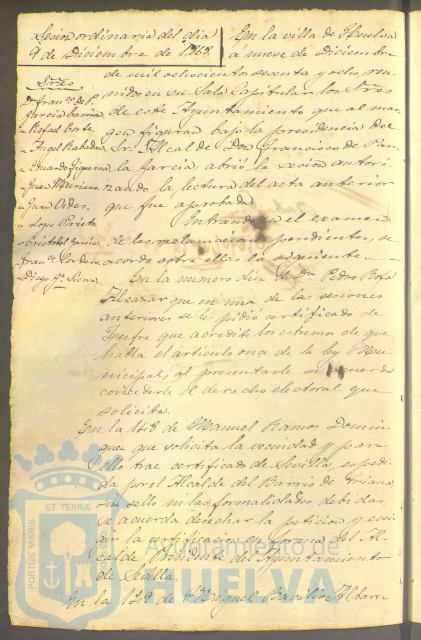 Sesion ordinaria del dia
9 de Diciembre de 1868.
Sres
Dn Franco. de P.
Garcia Barria
" Rafael
" Angel Rabadan
" Eduardo Figueroa
" Juan Mariano
" Juan Ades
" Lope Prieto
" Cristobal Garcia
" Franco. Cordero
" Diego Ga. Sierra
En la villa de Huelva
á nueve de Diciembre
de mil ochocientos sesenta y ocho, reu-
nidos en su Sala Capitular los Sres
de este Ayuntamiento que al mar-
gen figuran bajo la presidencia del
Sr. Alcalde Don Francisco de Pau-
la Garcia, abrió la sesion autori-
zando la lectura del acta anterior
que fue aprobada.
Entrando en el examen
de las reclamaciones pendientes, se
acordó sobre ellas lo siguiente.
En la numero diez de Dn Pedro
Alcazar que en una de las sesiones
anteriores se le pidió certificado de
que acredite los estremos de que
habla el articulo once de la ley Mu-
nicipal, al presentarle se acuerda
concederle el derecho electoral que
solicita.
En la 148 de Manuel Ramos Domin-
guez que solicita la vecindad y para
ello trae certificado de Sevilla, espedi-
da por el Alcalde del Barrio de Triana,
sin sello ni las formalidades debidas,
se acuerda desechar la peticion y exi-
gir la certificacion en forma del Al-
calde Presidente del Ayuntamiento
de Sevilla.
En la 149 de Miguel
PORTUS MARIS
ET TERRAE
Ayuntamiento de
HUELVA